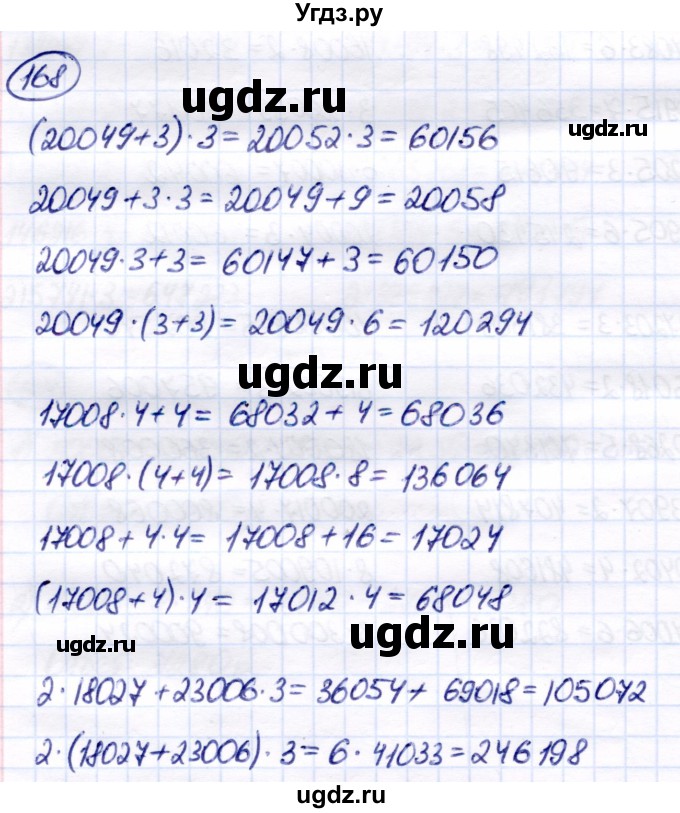 Угдз.ру
168
ugdz.ru
ugdz.ru
(20049+3)·3=20052·3=60156
20049+3·3=20049+9=20058
20049·3+3=60147+3=60150
20049·(3+3)=20049·6=120294
ugdz.ru
17008·4+4=68032+4=68036
17008·(4+4)=17008·8=136064
17008+4·4=17008+16=17024
(17008+4)·4=17012·4=68048
ugdz.ru
ugdz.ru
2·18027+23006·3=36054+69018=105072
2·(18027+23006)·3=6·41033=246198
ugdz.ru